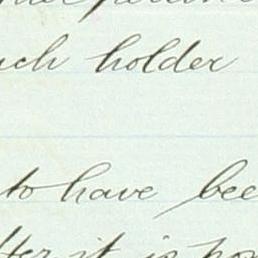 uch holder
to have bee
fter it is po